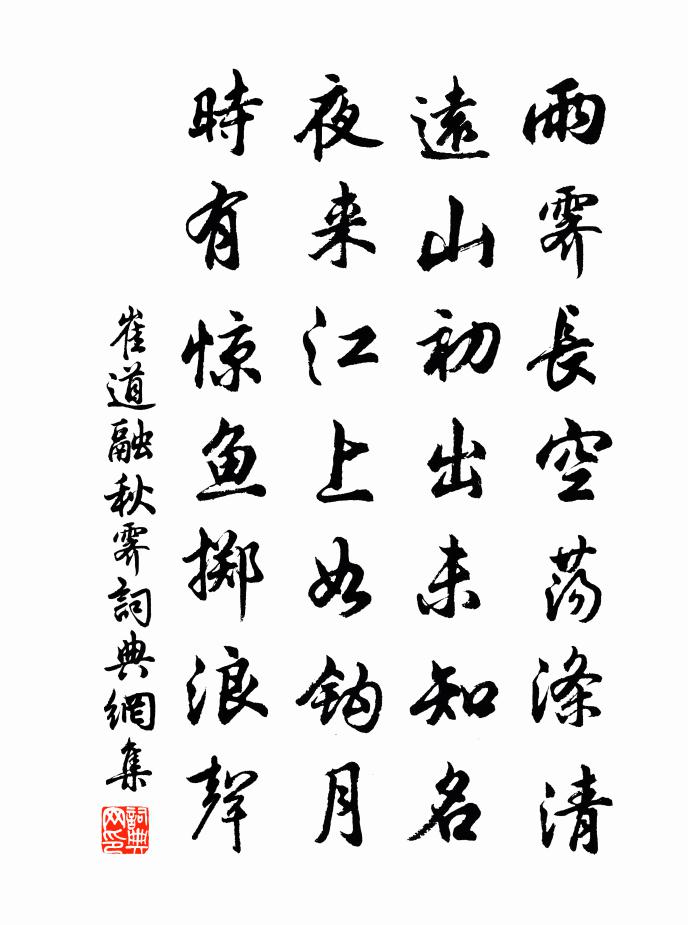 雨霽長空荡滌清
遠山初出未知名
夜来江上如钩月
時有惊鱼掷浪聲
崔道融秋霽詞典網集
詞典网印